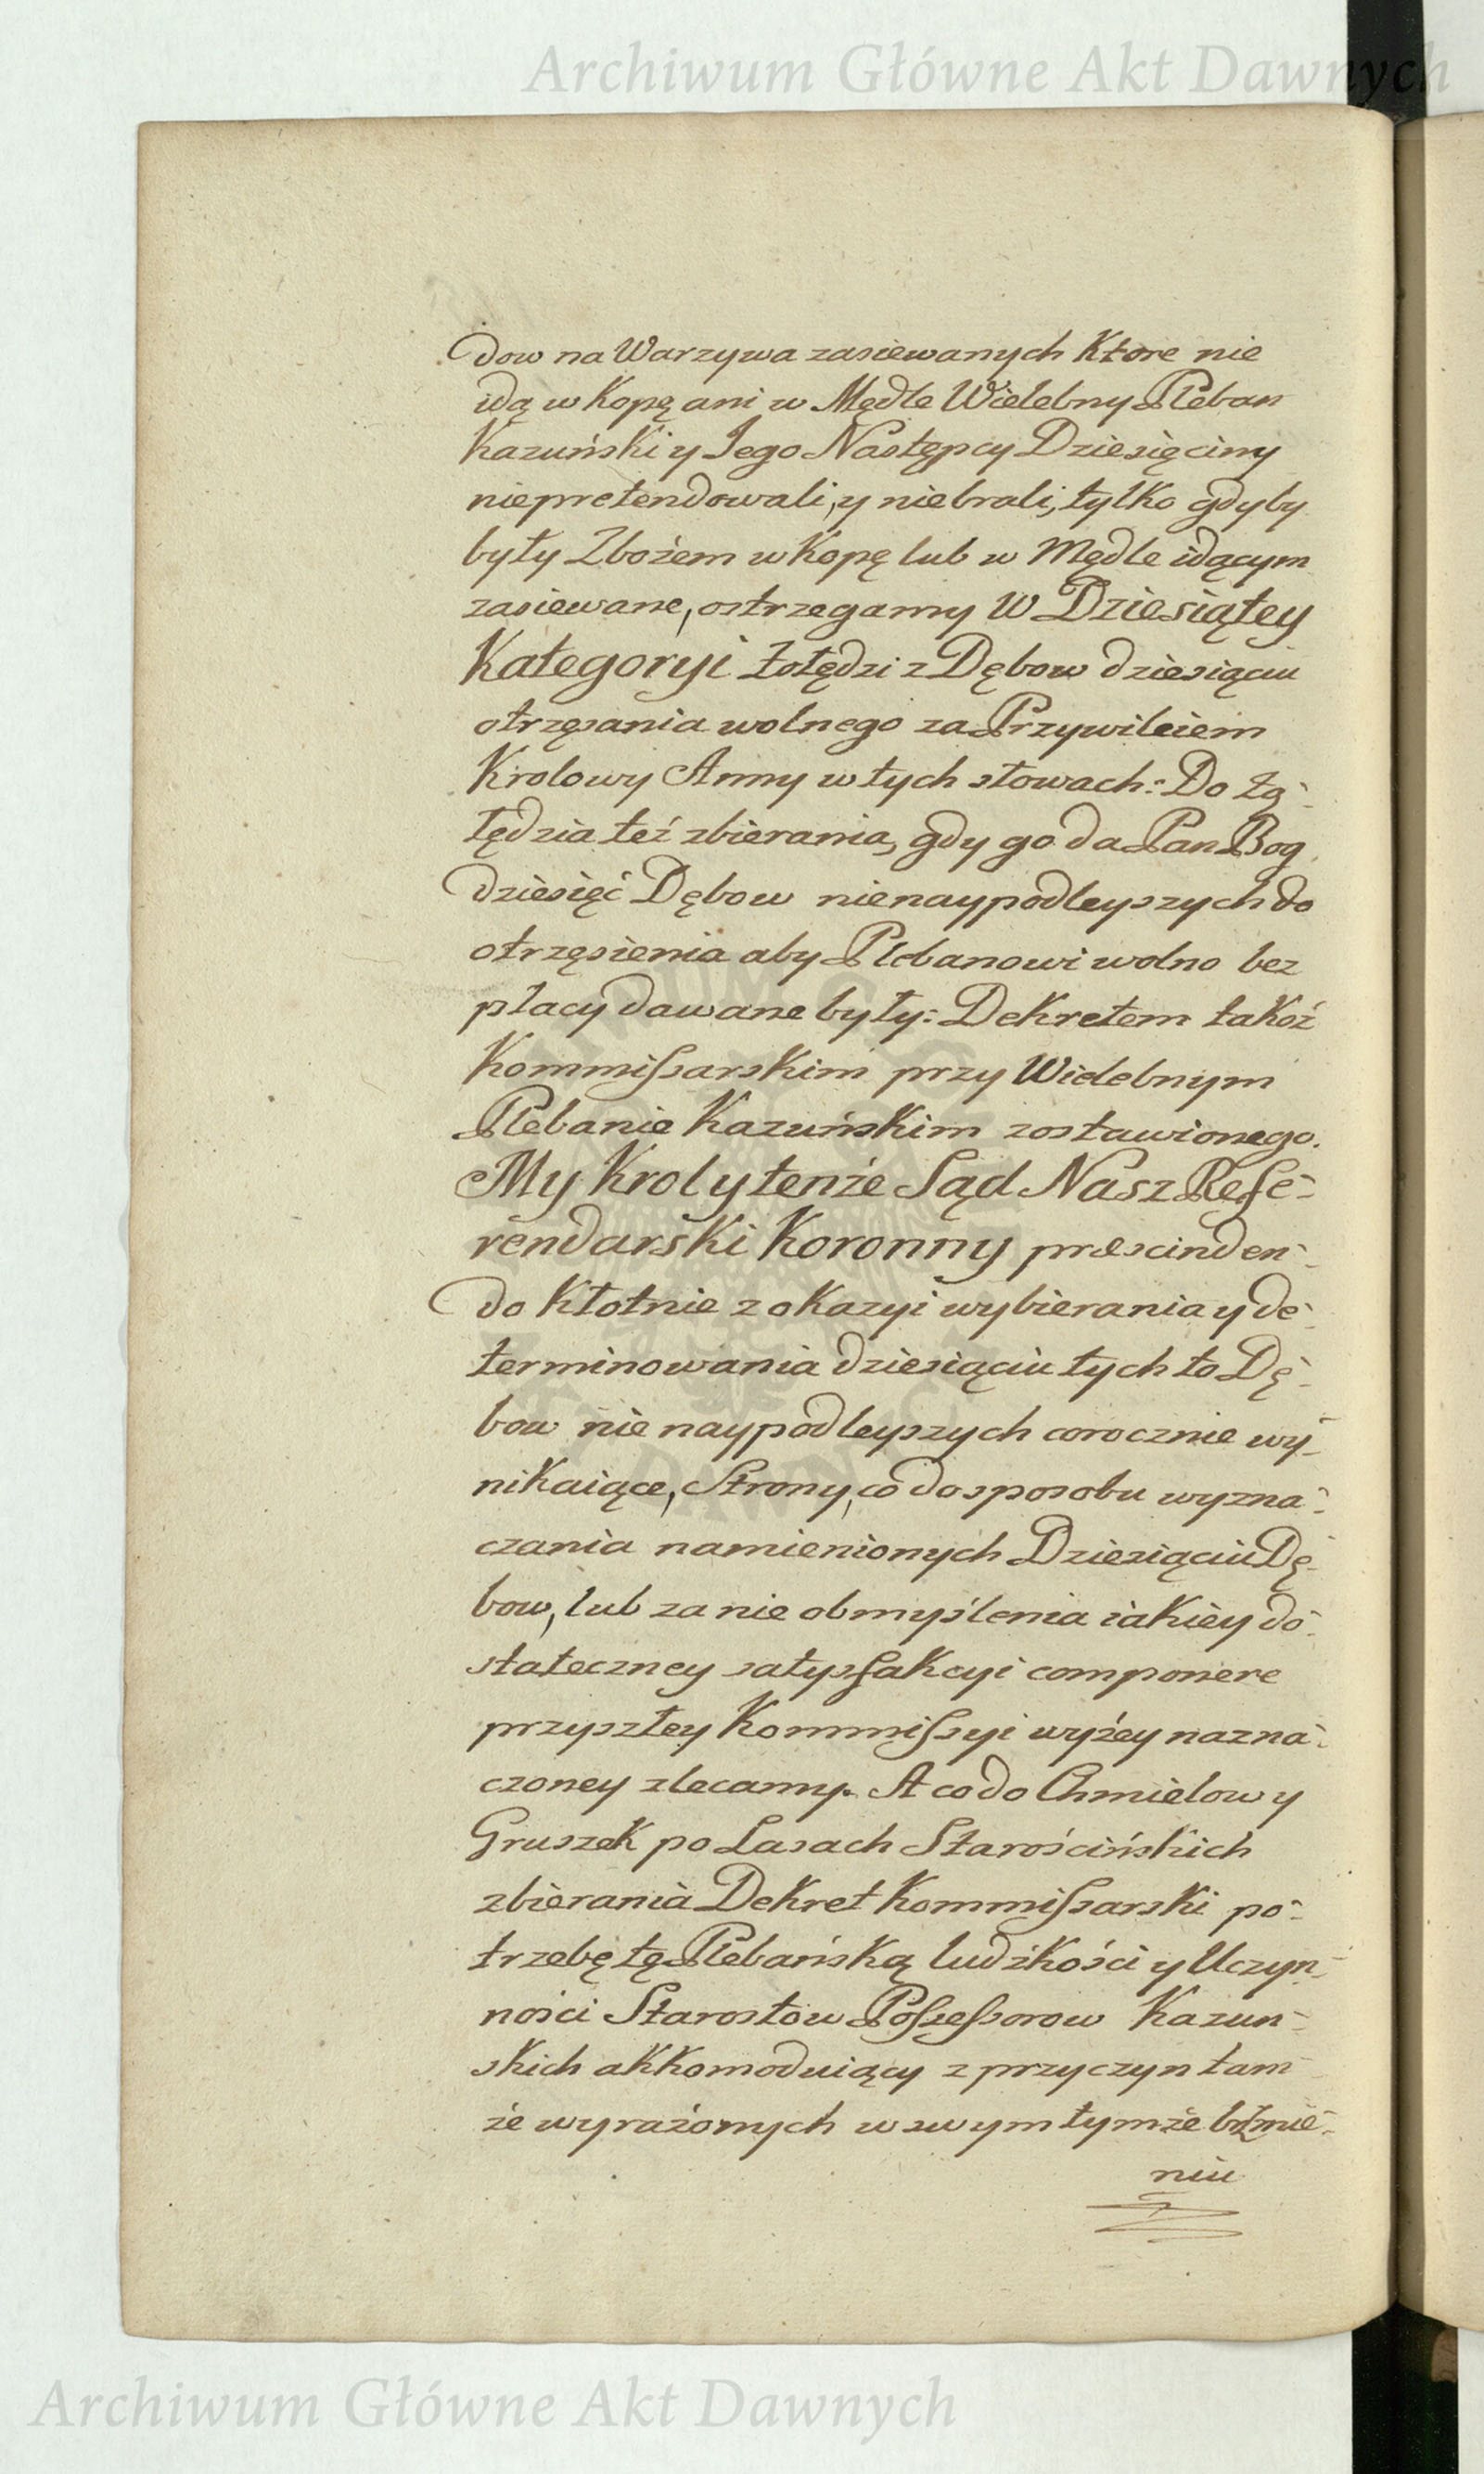 Archiwum Główne Akt Dawnych
dow na Warzywa zasiewanych Ktore nie
idą w Kopę ani w Mędle Wielebny Pleban
Kazuński y Jego Następcy Dziesięciny
niepretendowali, y niebrali, tylko gdyby
były Zbożem w Kopę lub w Mędle idącym
zasiewane, ostrzegamy W Dziesiątey
Kategoryi Żołędzi z Dębow dziesiąciu
otrzęsania wolnego za Przywileiem
Krolowy Anny w tych słowach: Do Żo-
łędzia też zbierania, gdy go da Pan Bog
dziesięć Dębow nienaypodleyszych do
otrzęsienia aby Plebanowi wolno bez
płacy dawane były: Dekretem takoż
Kommiſsarskim przy Wielebnym
Plebanie Kazuńskim zostawionego.
My Krol y tenże Sąd Nasz Refe-
rendarski Koronny præscinden-
do Kłotnie z okazyi wybierania y de-
terminowania dziesiąciu tych to Dę-
bow nie naypodleyszych corocznie wy-
nikaiące, Strony, co do sposobu wyzna-
czania namienionych Dziesiąciu Dę-
bow, lub za nie obmyślenia iakiey do-
stateczney satysfakcyi componere
przyszłey Kommiſsyi wyżey nazna-
czoney zlecamy. A co do Chmielow y
Gruszek po Lasach Starościńskich
zbierania Dekret Kommiſsarski po-
trzebę tę Plebańską ludzkości y Uczyn-
ności Starostow Poſseſsorow Kazun-
skich akkomoduiący z przyczyn tam
że wyrażonych w swym tymże brzmie-
niu
Archiwum Główne Akt Dawnych